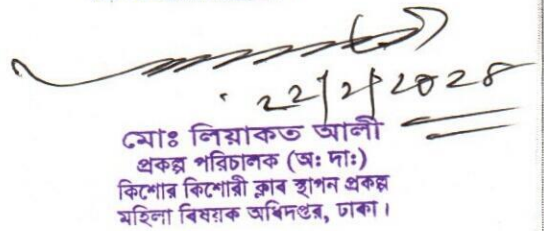 ২২/২/২০২৪
মোঃ লিয়াকত আলী
প্রকল্প পরিচালক (অ: দা:)
কিশোর কিশোরী ক্লাব স্থাপন প্রকল্প
মহিলা বিষয়ক অধিদপ্তর, ঢাকা।